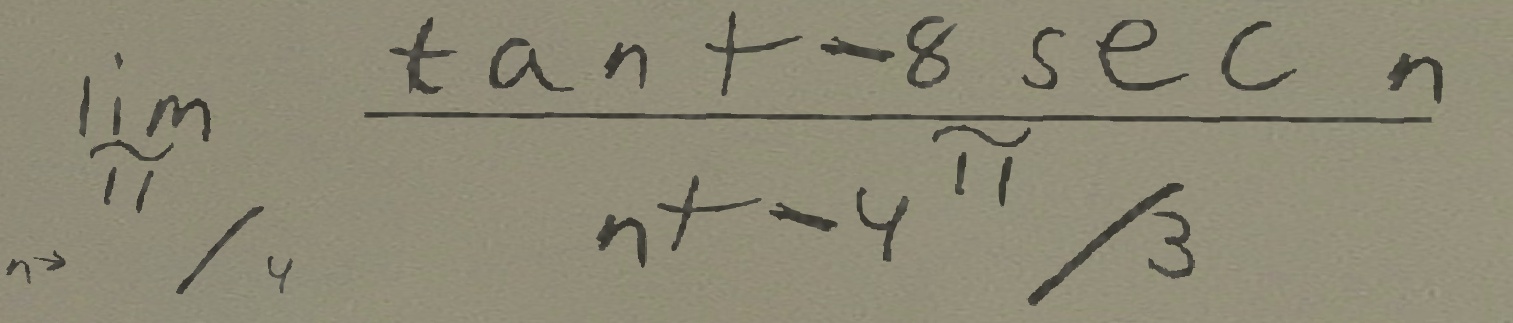 lim n→π/4 tan t - 8 sec n
nt - 4π/3